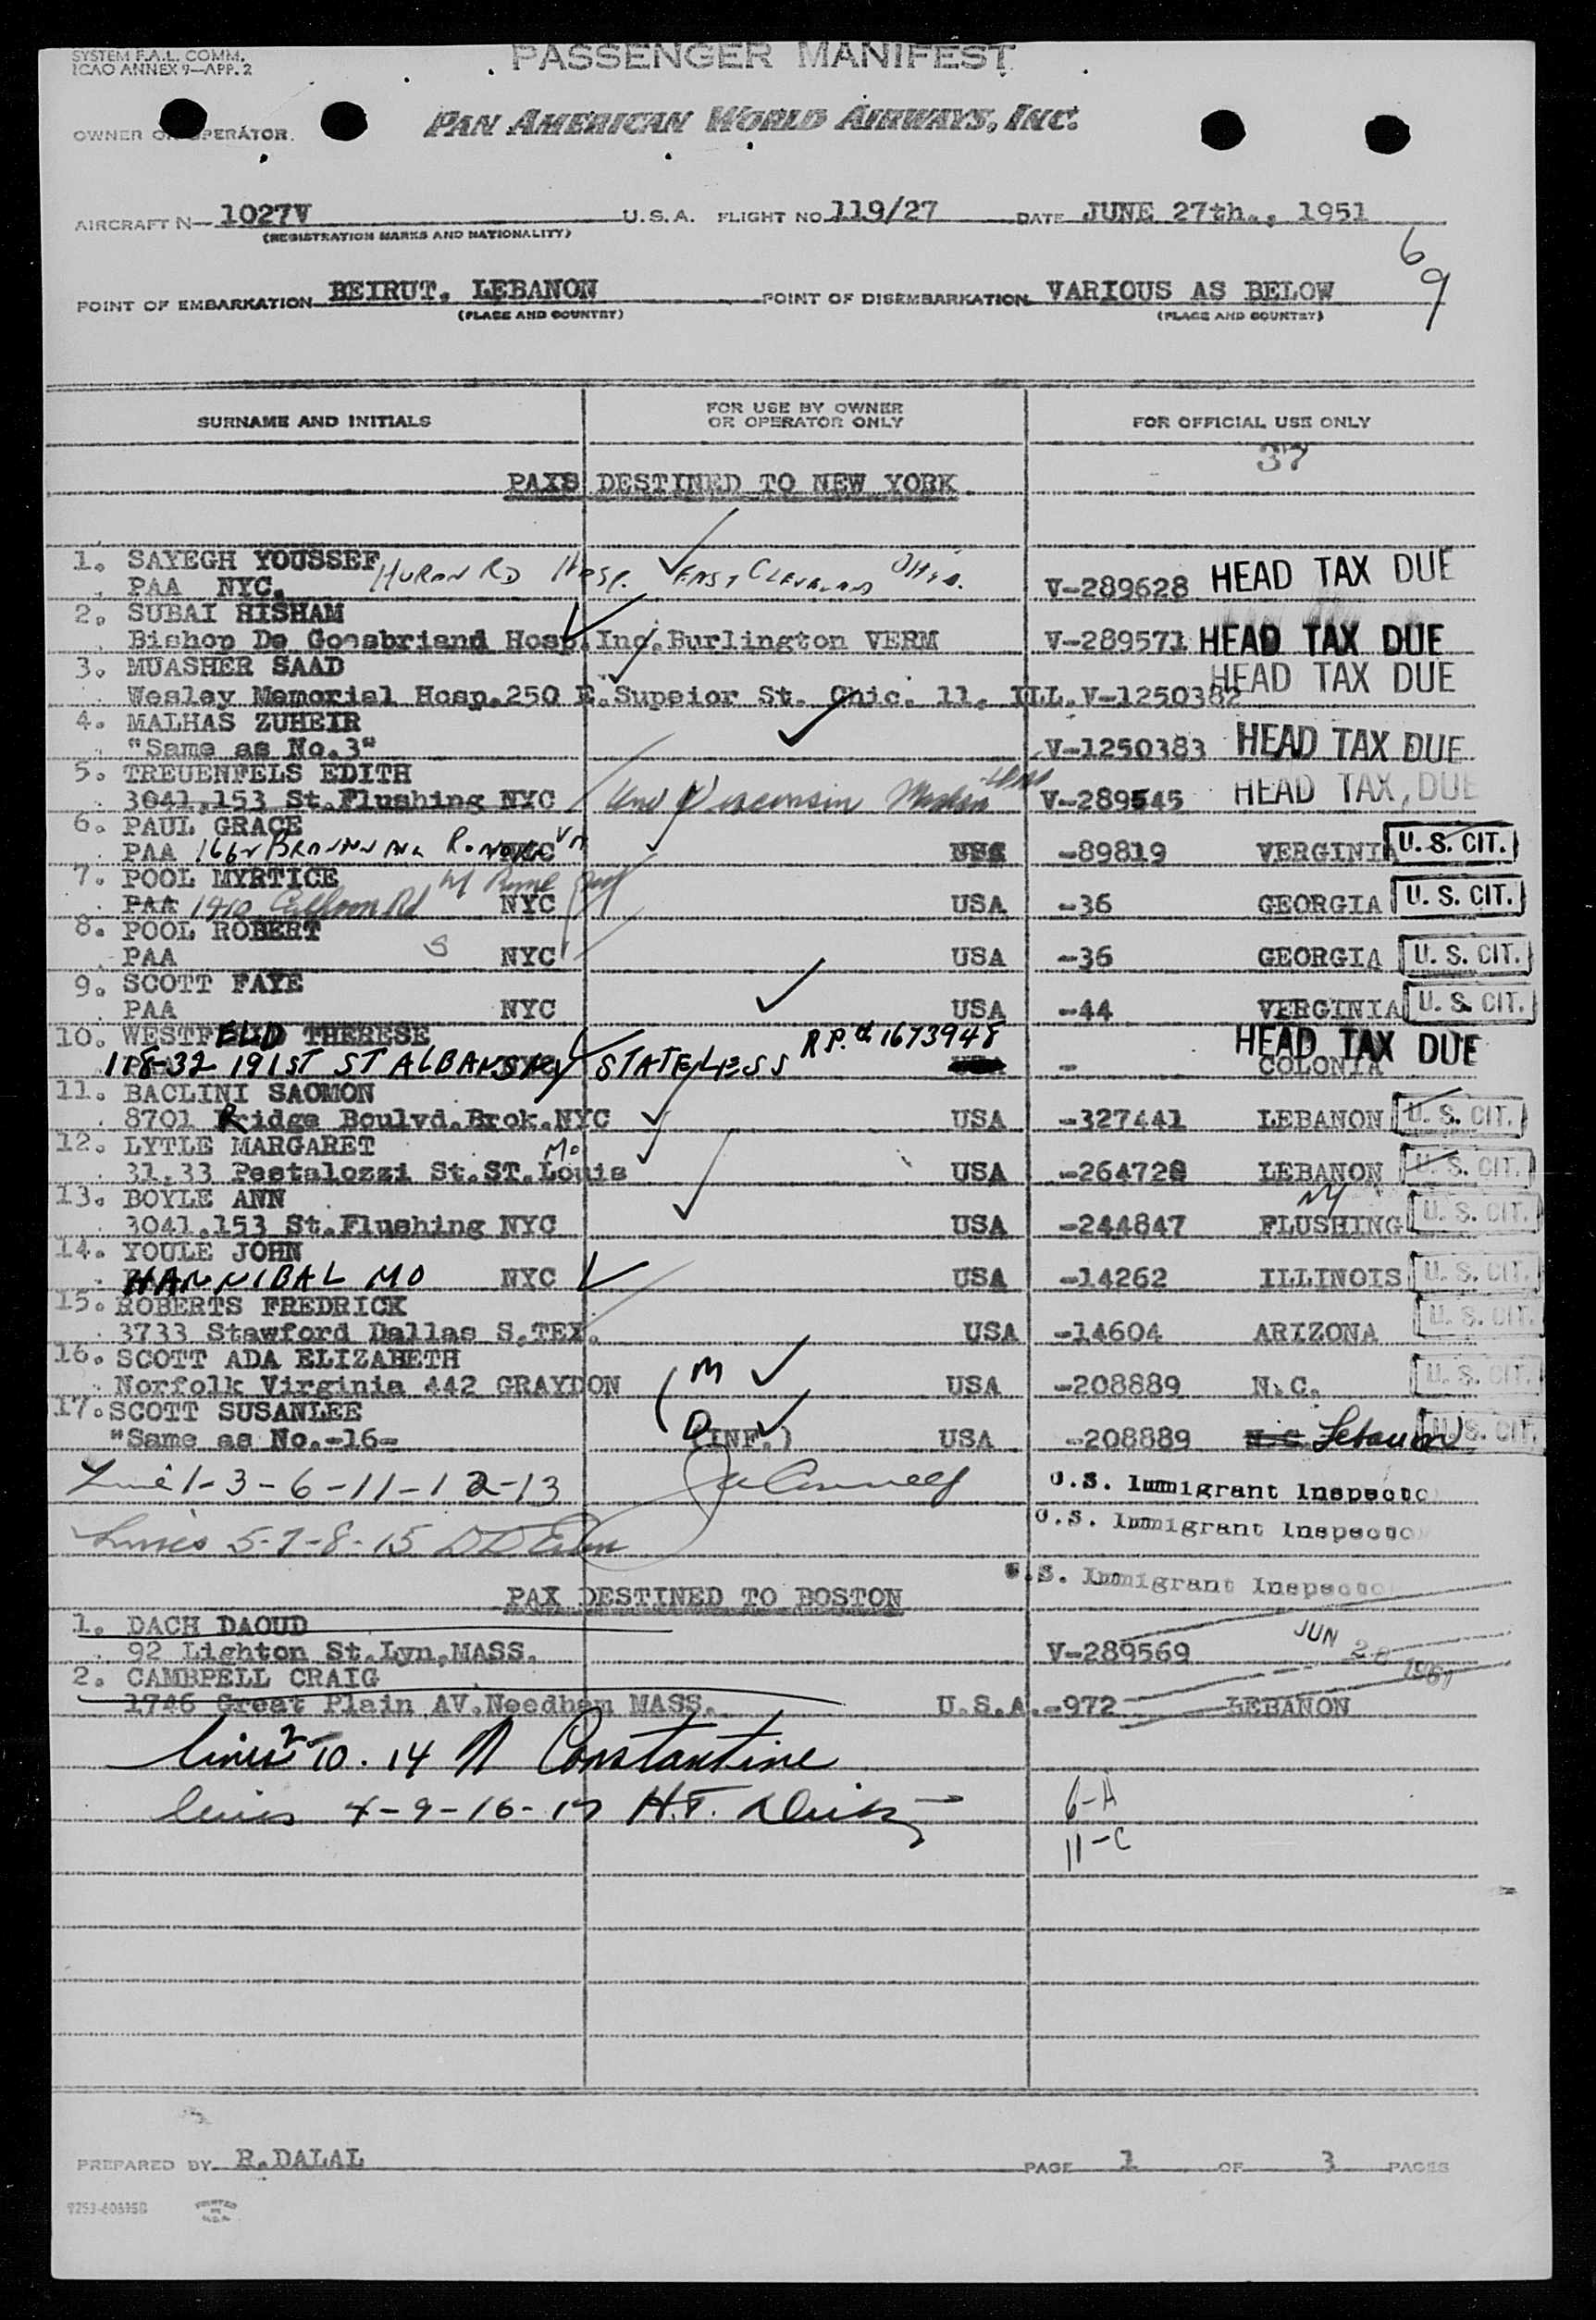 SYSTEM F.A.L. COMM.
ICAO ANNEX 9—APP. 2
PASSENGER MANIFEST
OWNER OR OPERATOR.
PAN AMERICAN WORLD AIRWAYS, INC.
AIRCRAFT N— 1027V U.S.A. FLIGHT NO. 119/27 DATE JUNE 27th., 1951
(REGISTRATION MARKS AND NATIONALITY)
6
9
POINT OF EMBARKATION BEIRUT, LEBANON POINT OF DISEMBARKATION VARIOUS AS BELOW
(PLACE AND COUNTRY) (PLACE AND COUNTRY)
SURNAME AND INITIALS FOR USE BY OWNER OR OPERATOR ONLY FOR OFFICIAL USE ONLY
37
PAXS DESTINED TO NEW YORK
1. SAYEGH YOUSSEF
PAA NYC. HURON RD HOSP. EAST CLEVELAND OHIO. V-289628 HEAD TAX DUE
2. SUBAI HISHAM
Bishop De Goesbriand Hosp.Inc.Burlington VERM V-289571 HEAD TAX DUE
3. MUASHER SAAD HEAD TAX DUE
Wesley Memorial Hosp.250 E.Supeior St. Chic. 11. ILL.V-1250382
4. MALHAS ZUHEIR
"Same as No.3" V-1250383 HEAD TAX DUE
5. TREUENFELS EDITH
3041,153 St.Flushing NYC Univ Wisconsin V-289545 HEAD TAX DUE
6. PAUL GRACE
PAA NYC -89819 VERGINIA U. S. CIT.
7. POOL MYRTICE
PAA 1910 Calhoun Rd NYC USA -36 GEORGIA U. S. CIT.
8. POOL ROBERT
PAA S NYC USA -36 GEORGIA U. S. CIT.
9. SCOTT FAYE
PAA NYC USA -44 VERGINIA U. S. CIT.
10. WESTFELD THERESE R.P.# 1673948 HEAD TAX DUE
118-32 191ST ST ALBANS NY STATELESS - COLONIA
11. BACLINI SAOMON
8701 Ridge Boulvd.Brok.NYC USA -327441 LEBANON U. S. CIT.
12. LYTLE MARGARET Mo
31,33 Pestalozzi St.ST.Louis USA -264728 LEBANON U. S. CIT.
13. BOYLE ANN NY
3041,153 St.Flushing NYC USA -244847 FLUSHING U. S. CIT.
14. YOULE JOHN
HANNIBAL MO NYC USA -14262 ILLINOIS U. S. CIT.
15. ROBERTS FREDRICK
3733 Stawford Dallas S,TEX. USA -14604 ARIZONA U. S. CIT.
16. SCOTT ADA ELIZABETH M
Norfolk Virginia 442 GRAYDON USA -208889 N.C. U. S. CIT.
17. SCOTT SUSANLEE D
"Same as No.-16- (INF.) USA -208889 N.C. Lebanon U. S. CIT.
Line 1-3-6-11-12-13 U.S. Immigrant Inspector
Lines 5-7-8-15 U.S. Immigrant Inspector
U.S. Immigrant Inspector
PAX DESTINED TO BOSTON
1. DACH DAOUD JUN 28 1951
92 Lighton St.Lyn,MASS. V-289569
2. CAMBPELL CRAIG
1746 Great Plain AV.Needham MASS. U.S.A.-972 LEBANON
lines 2 10. 14 N Constantine
lines 4-9-16-17 H.F. 6-A
11-C
PREPARED BY R.DALAL PAGE 1 OF 3 PAGES
PRINTED IN U.S.A.